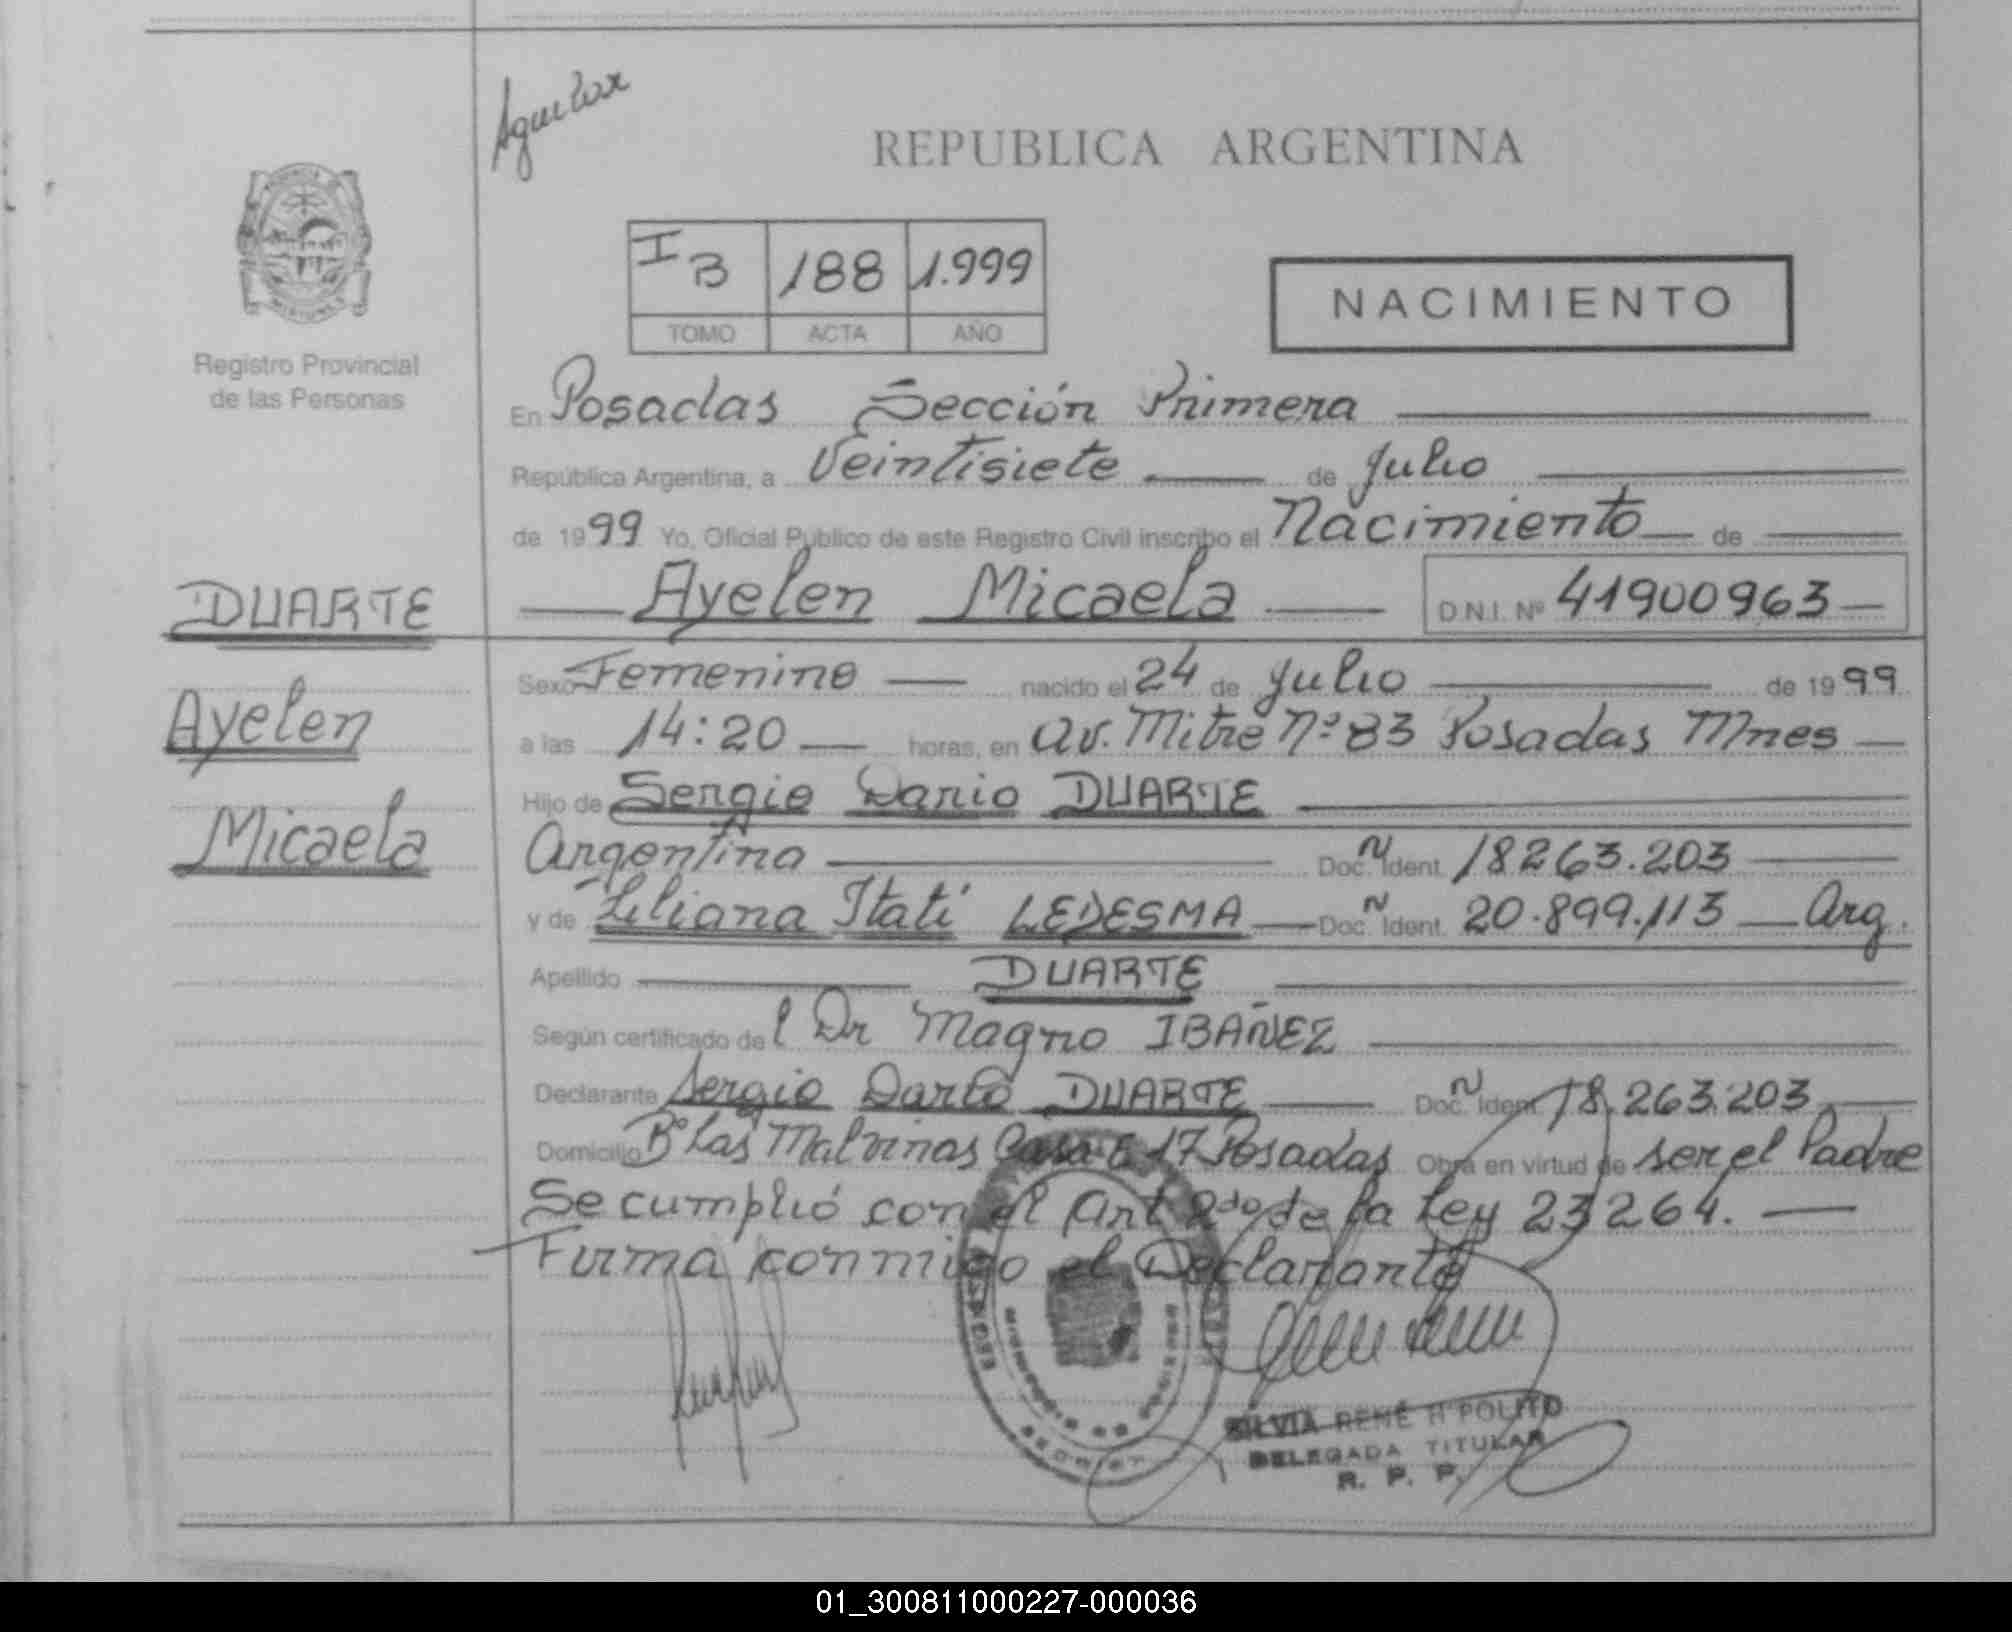 Aguilar
REPUBLICA ARGENTINA
I B 188 1.999
TOMO ACTA AÑO
NACIMIENTO
Registro Provincial
de las Personas
En Posadas Sección Primera
República Argentina, a Veintisiete de Julio
de 1999 Yo, Oficial Público de este Registro Civil inscribo el Nacimiento de
DUARTE
Ayelen Micaela D.N.I. Nº 41900963
Sexo Femenino nacido el 24 de Julio de 1999
Ayelen
a las 14:20 horas, en Av. Mitre Nº 83 Posadas Mnes
Hijo de Sergio Dario DUARTE
Micaela
Argentina Doc. N Ident. 18263.203
y de Liliana Itatí LEDESMA Doc. N Ident. 20.899.113 Arg.
Apellido DUARTE
Según certificado del Dr Magno IBAÑEZ
Declarante Sergio Darío DUARTE Doc. N Ident. 18.263.203
Domicilio Bº Las Malvinas Casa 17 Posadas Obra en virtud de ser el Padre
Se cumplió con el Art 2do de la Ley 23264.
Firma conmigo el Declarante
SILVIA RENÉ H POLITO
DELEGADA TITULAR
R. P. P.
01_300811000227-000036